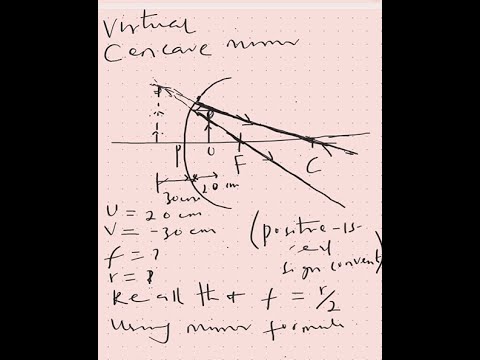 Virtual
Concave mirror
P
U
F
C
30cm
20 cm
U = 20 cm
V = -30 cm
f = ?
r = ?
(positive-is-
real
sign convent)
Recall that f = r/2
Using mirror formula